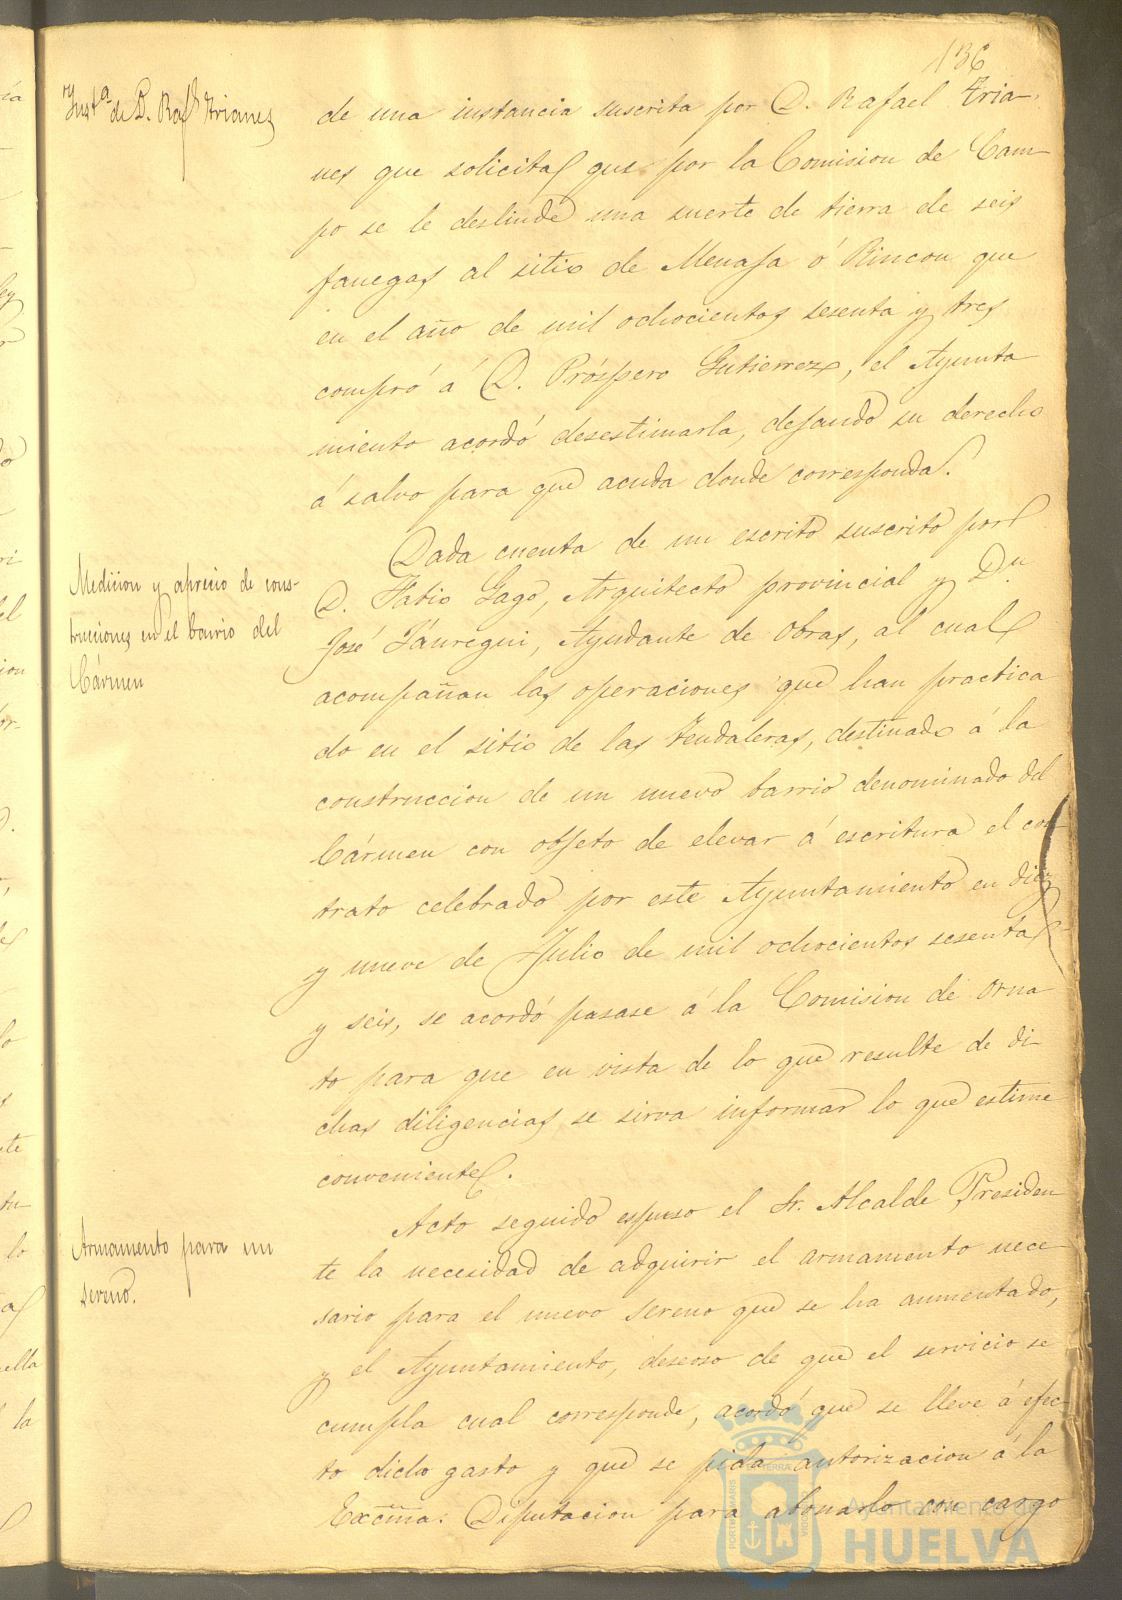 136
Inst.ª de D. Raf.l Trianes
de una instancia suscrita por D. Rafael Tria-
nes que solicita que por la Comision de Cam-
po se le deslinde una suerte de tierra de seis
fanegas al sitio de Menaja ó Rincon que
en el año de mil ochocientos sesenta y tres
compró á D. Próspero Gutierrez, el Ayunta
miento acordó desestimarla, dejando su derecho
á salvo para que acuda donde corresponda.
Medicion y aprecio de cons-
trucciones en el barrio del
Cármen
Dada cuenta de un escrito suscrito por
D. Fabio Gago, Arquitecto provincial y Dn
José Jáuregui, Ayudante de Obras, al cual
acompañan las operaciones que han practica
do en el sitio de las Tendaleras, destinado á la
construccion de un nuevo barrio denominado del
Cármen con objeto de elevar á escritura el con-
trato celebrado por este Ayuntamiento en diez
y nueve de Julio de mil ochocientos sesenta
y seis, se acordó pasase á la Comision de Orna
to para que en vista de lo que resulte de di-
chas diligencias se sirva informar lo que estime
conveniente.
Armamento para un
sereno.
Acto seguido espuso el Sr. Alcalde Presiden
te la necesidad de adquirir el armamento nece
sario para el nuevo sereno que se ha aumentado,
y el Ayuntamiento, deseoso de que el servicio se
cumpla cual corresponde, acordó que se lleve á efec-
to dicho gasto y que se pida autorizacion á la
Excma. Diputacion para abonarlo con cargo
Ayuntamiento de
HUELVA